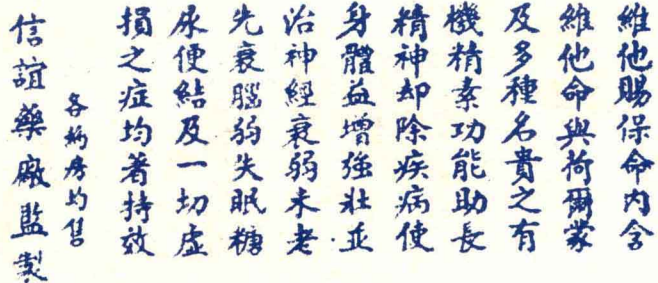 維他賜保命內含
維他命與荷爾蒙
及多種名貴之有
機精素功能助長
精神却除疾病使
身體益增強壯並
治神經衰弱未老
先衰腦弱失眠糖
尿便結及一切虛
損之症均著特效
各葯房均售
信誼藥廠監製